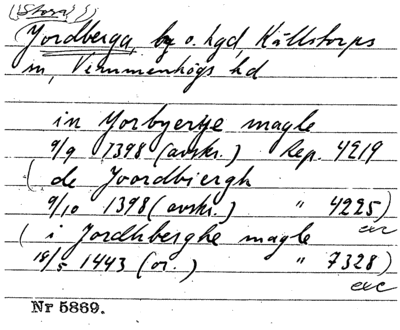 (Stora?)
Jordberga, by o. hgd, Källstorps
sn, Vemmenhögs hd
in Yorbyerghe magle
9/9 1398 (avskr.) Rep. 4219
( de Joordbiergh
9/10 1398 (avskr.) " 4225)
exc
( i Jordhberghe magle
18/5 1443 (or.) " 7328)
exc
Nr 5869.